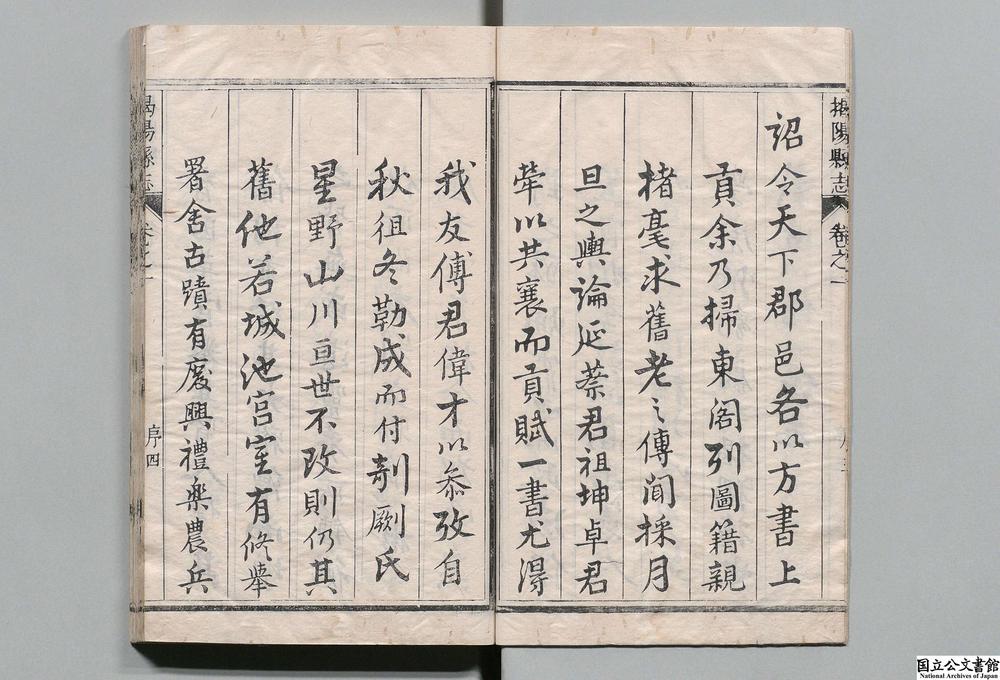 揭陽縣志 卷之一
詔令天下郡邑各以方書上
貢余乃掃東閣列圖籍親
楮毫求舊老之傳聞採月
旦之輿論延蔡君祖坤卓君
犖以共襄而貢賦一書尤得
我友傅君偉才以叅攷自
秋徂冬勒成而付剞劂氏
星野山川亘世不改則仍其
舊他若城池宮室有修舉
署舍古蹟有廢興禮樂農兵
揭陽縣志 卷之一 序四
国立公文書館
National Archives of Japan